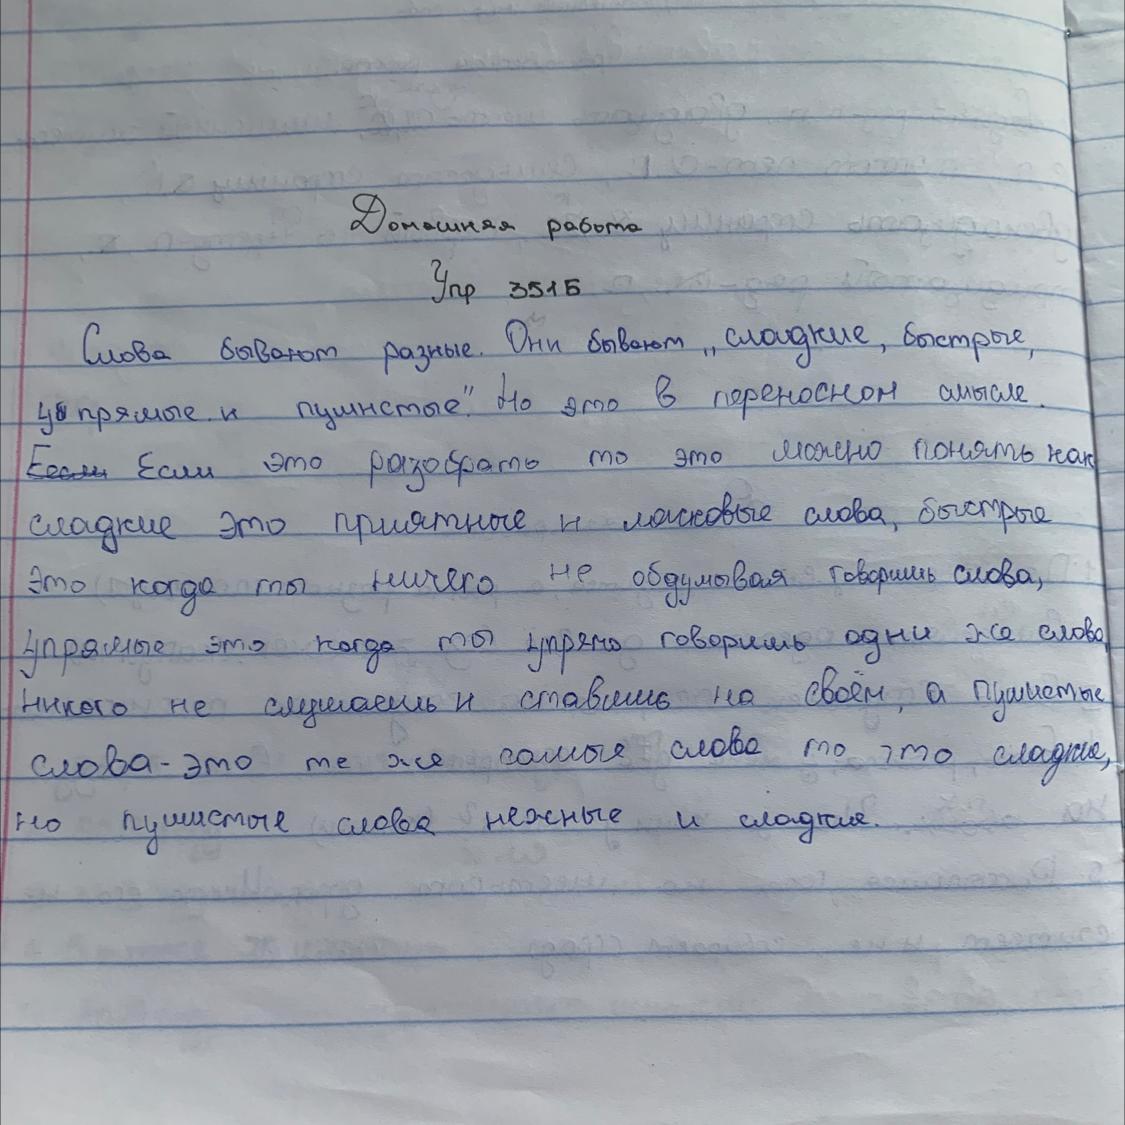 Домашняя работа
Упр 351Б
Слова бывают разные. Они бывают „сладкие, быстрые,
упрямые и пушистые". Но это в переносном смысле.
Если Если это разобрать то это можно понять как
сладкие это приятные и ласковые слова, быстрые
это когда ты ничего не обдумовая говоришь слова,
упрямые это когда ты упрямо говоришь одни же слова,
никого не слушаешь и ставишь на своём, а пушистые
слова-это те же самые слова то это сладкие,
но пушистые слова нежные и сладкие.